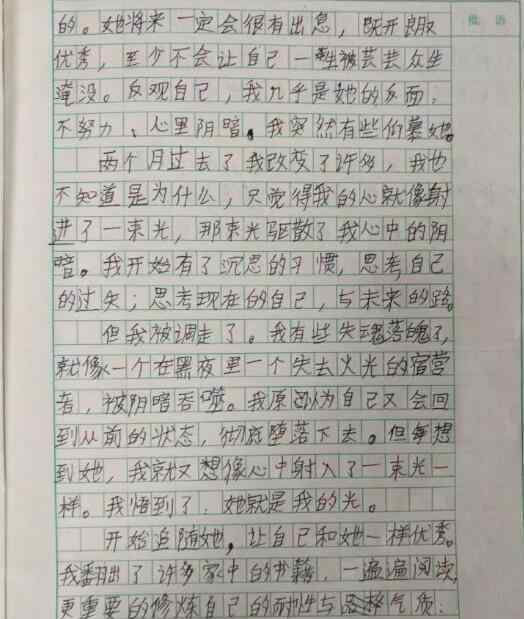 批 语
的。她将来一定会很有出息，既开朗又
优秀，至少不会让自己一生被芸芸众生
淹没。反观自己，我几乎是她的反面，
不努力、心里阴暗。我突然有些仰慕她。
两个月过去了我改变了许多，我也
不知道是为什么，只觉得我的心就像射
进了一束光，那束光驱散了我心中的阴
暗。我开始有了沉思的习惯，思考自己
的过失；思考现在的自己，与未来的路。
但我被调走了。我有些失魂落魄了，
就像一个在黑夜里一个失去火光的宿营
者，被阴暗吞噬。我原以为自己又会回
到从前的状态，彻底堕落下去。但每想
到她，我就又想像心中射入了一束光一
样。我悟到了，她就是我的光。
开始追随她，让自己和她一样优秀。
我翻出了许多家中的书籍，一遍遍阅读，
更重要的修炼自己的耐性与 气质：